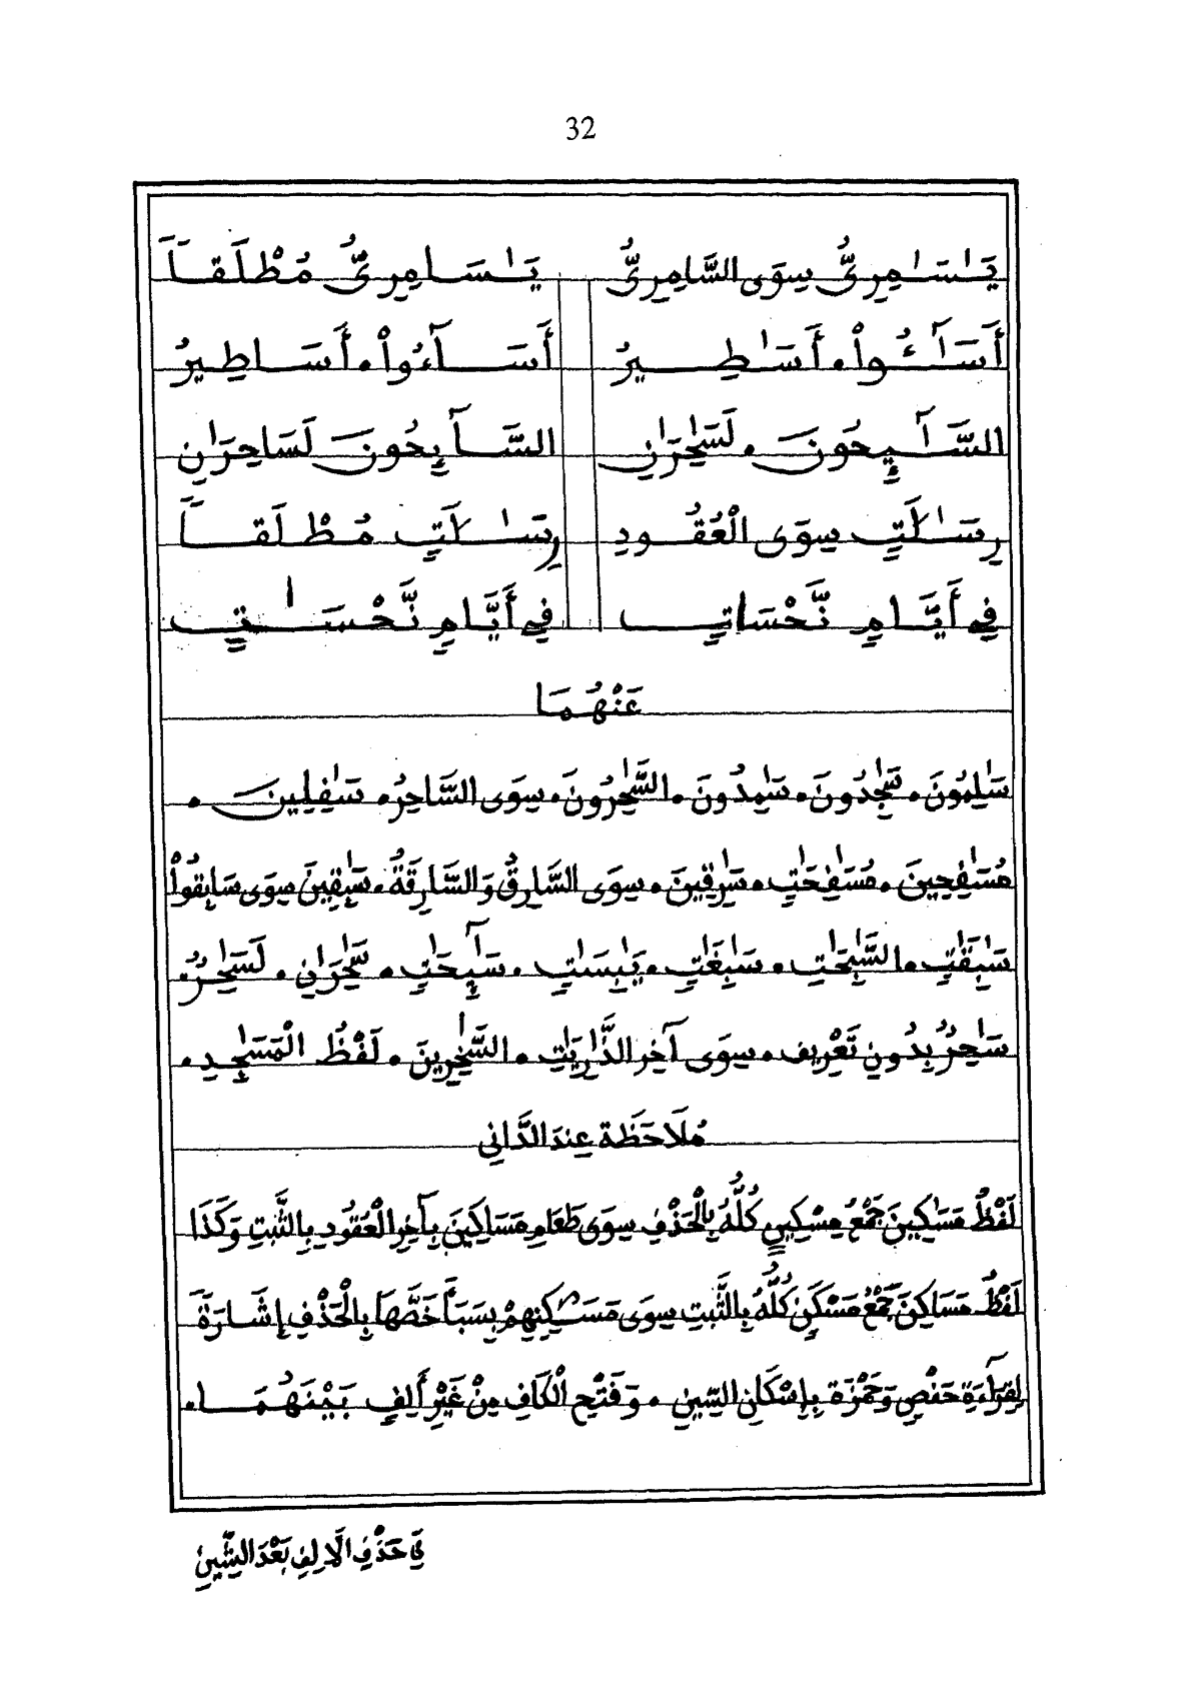 32
يَٰسَٰمِرِىُّ سِوَى السَّامِرِىُّ يَٰسَامِرِىُّ مُطْلَقاً
أَسَٰٓـُٔواْ. أَسَٰطِيرُ أَسَآءُواْ. أَسَاطِيرُ
السَّٰٓئِحُونَ. لَسَٰحِرَٰنِ السَّآئِحُونَ لَسَاحِرَٰنِ
رِسَٰلَٰتِ سِوَى الْعُقُودِ رِسَٰلَٰتِ مُطْلَقاً
فِي أَيَّامٍ نَّحْسَاتٍ فِي أَيَّامٍ نَّحْسَٰتٍ
عَنْهُمَا
سَٰلِمُونَ. سَٰجِدُونَ. سَٰمِدُونَ. السَّٰحِرُونَ. سِوَى السَّاحِرُ. سَٰفِلِينَ.
مُسَٰفِحِينَ. مُسَٰفِحَٰتٍ. سَٰرِقِينَ. سِوَى السَّارِقُ وَالسَّارِقَةُ. سَٰبِقِينَ سِوَى سَابِقُواْ
سَٰبِقَٰتٍ. السَّٰبِحَٰتِ. سَٰبِغَٰتٍ. يَابِسَٰتٍ. سَٰٓئِحَٰتٍ. سَٰحِرَٰنِ. لَسَٰحِرٌ.
سَٰحِرٌ بِدُونِ تَعْرِيفٍ. سِوَى آخِرِ الذَّٰرِيَٰتِ. السَّٰخِرِينَ. لَفْظُ الْمَسَٰجِدِ.
مُلَاحَظَة عِندَ الدَّانِي
لَفْظُ مَسَٰكِينَ جَمْعُ مِسْكِينٍ كُلُّهُ بِالْحَذْفِ سِوَى طَعَامِ مَسَاكِينَ بِآخِرِ الْعُقُودِ بِالثَّبْتِ وَكَذَا
لَفْظُ مَسَاكِنَ جَمْعُ مَسْكَنٍ كُلُّهُ بِالثَّبْتِ سِوَى مَسَٰكِنِهِمْ بِسَبَأ خَصَّهَا بِالْحَذْفِ إِشَارَةً
لِقِرَآءَةِ حَفْصٍ وَحَمْزَة بِإِسْكَانِ السِّينِ. وَفَتْحِ الْكَافِ مِنْ غَيْرِ أَلِفٍ بَيْنَهُمَا.
فِي حَذْفِ الَالِفِ بَعْدَ الشِّينِ